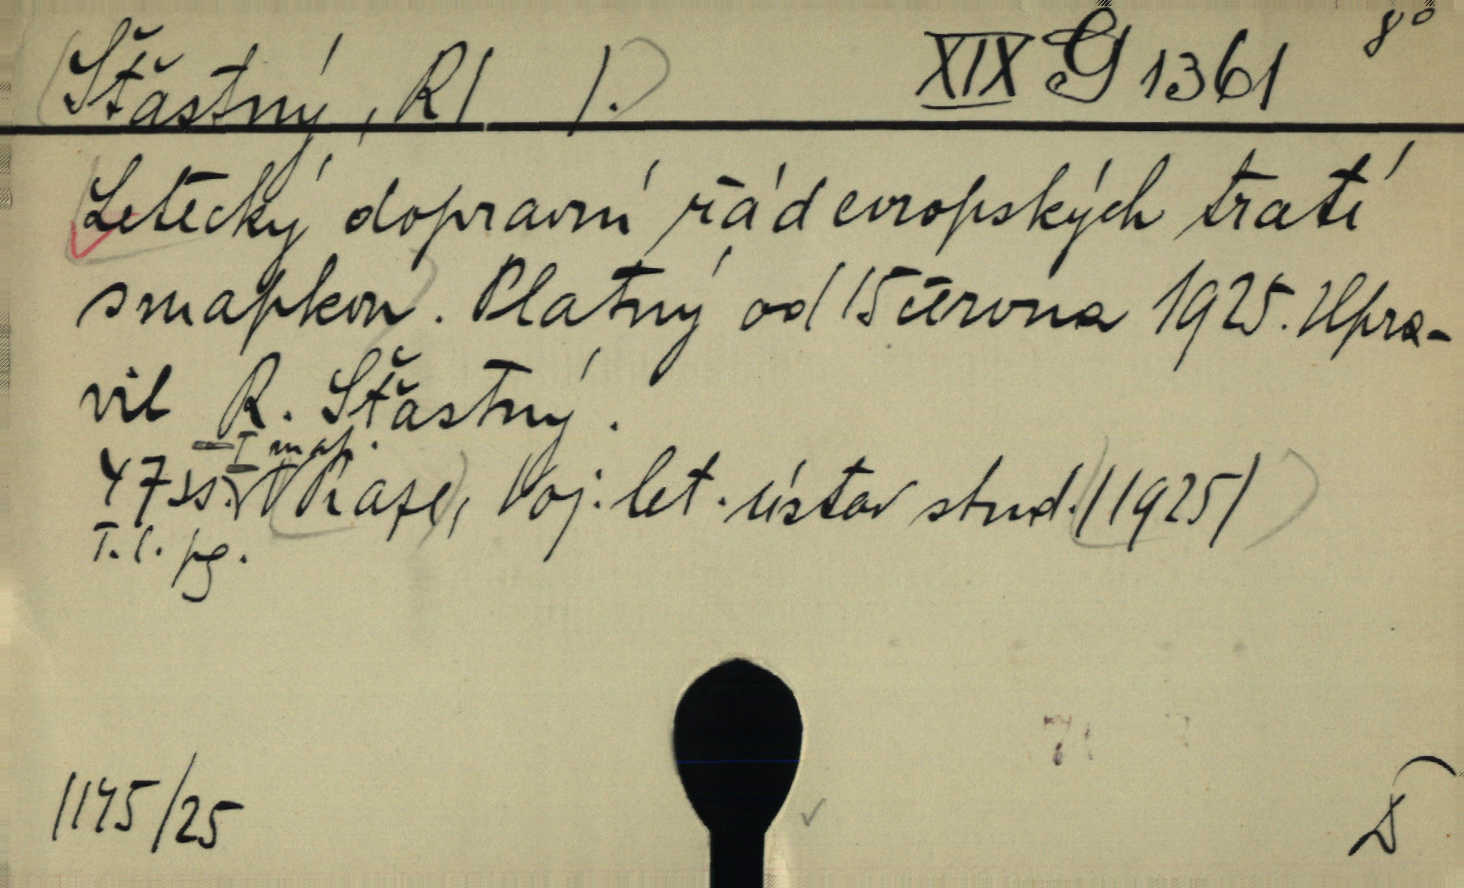 Šťastný, R/ /.
XIX G 1361
8°
Letecký dopravní řád evropských tratí
s mapkou. Platný od 15 června 1925. Upra-
vil R. Šťastný.
I map.
47 ss. V Praze, Voj. let. ústav stud. /1925/
T. l. pg.
1175/25